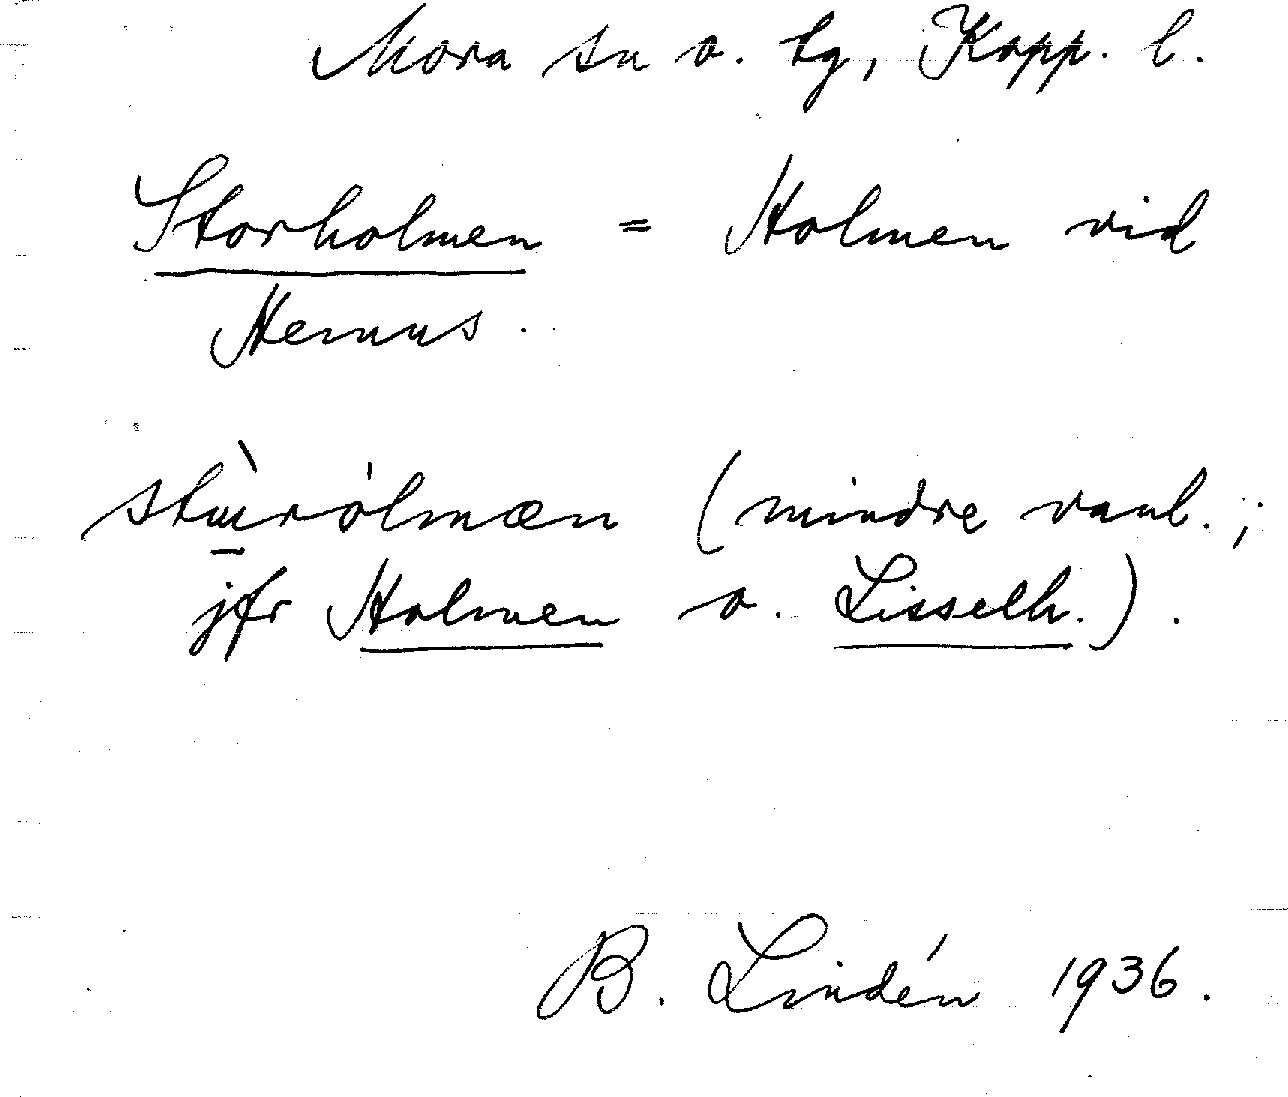 Mora sn o. tg, Kopp. l.
Storholmen = Holmen vid
Hemus.
stù̱rólmæn (mindre vanl.;
jfr Holmen o. Lisselh.).
B. Lindén 1936.